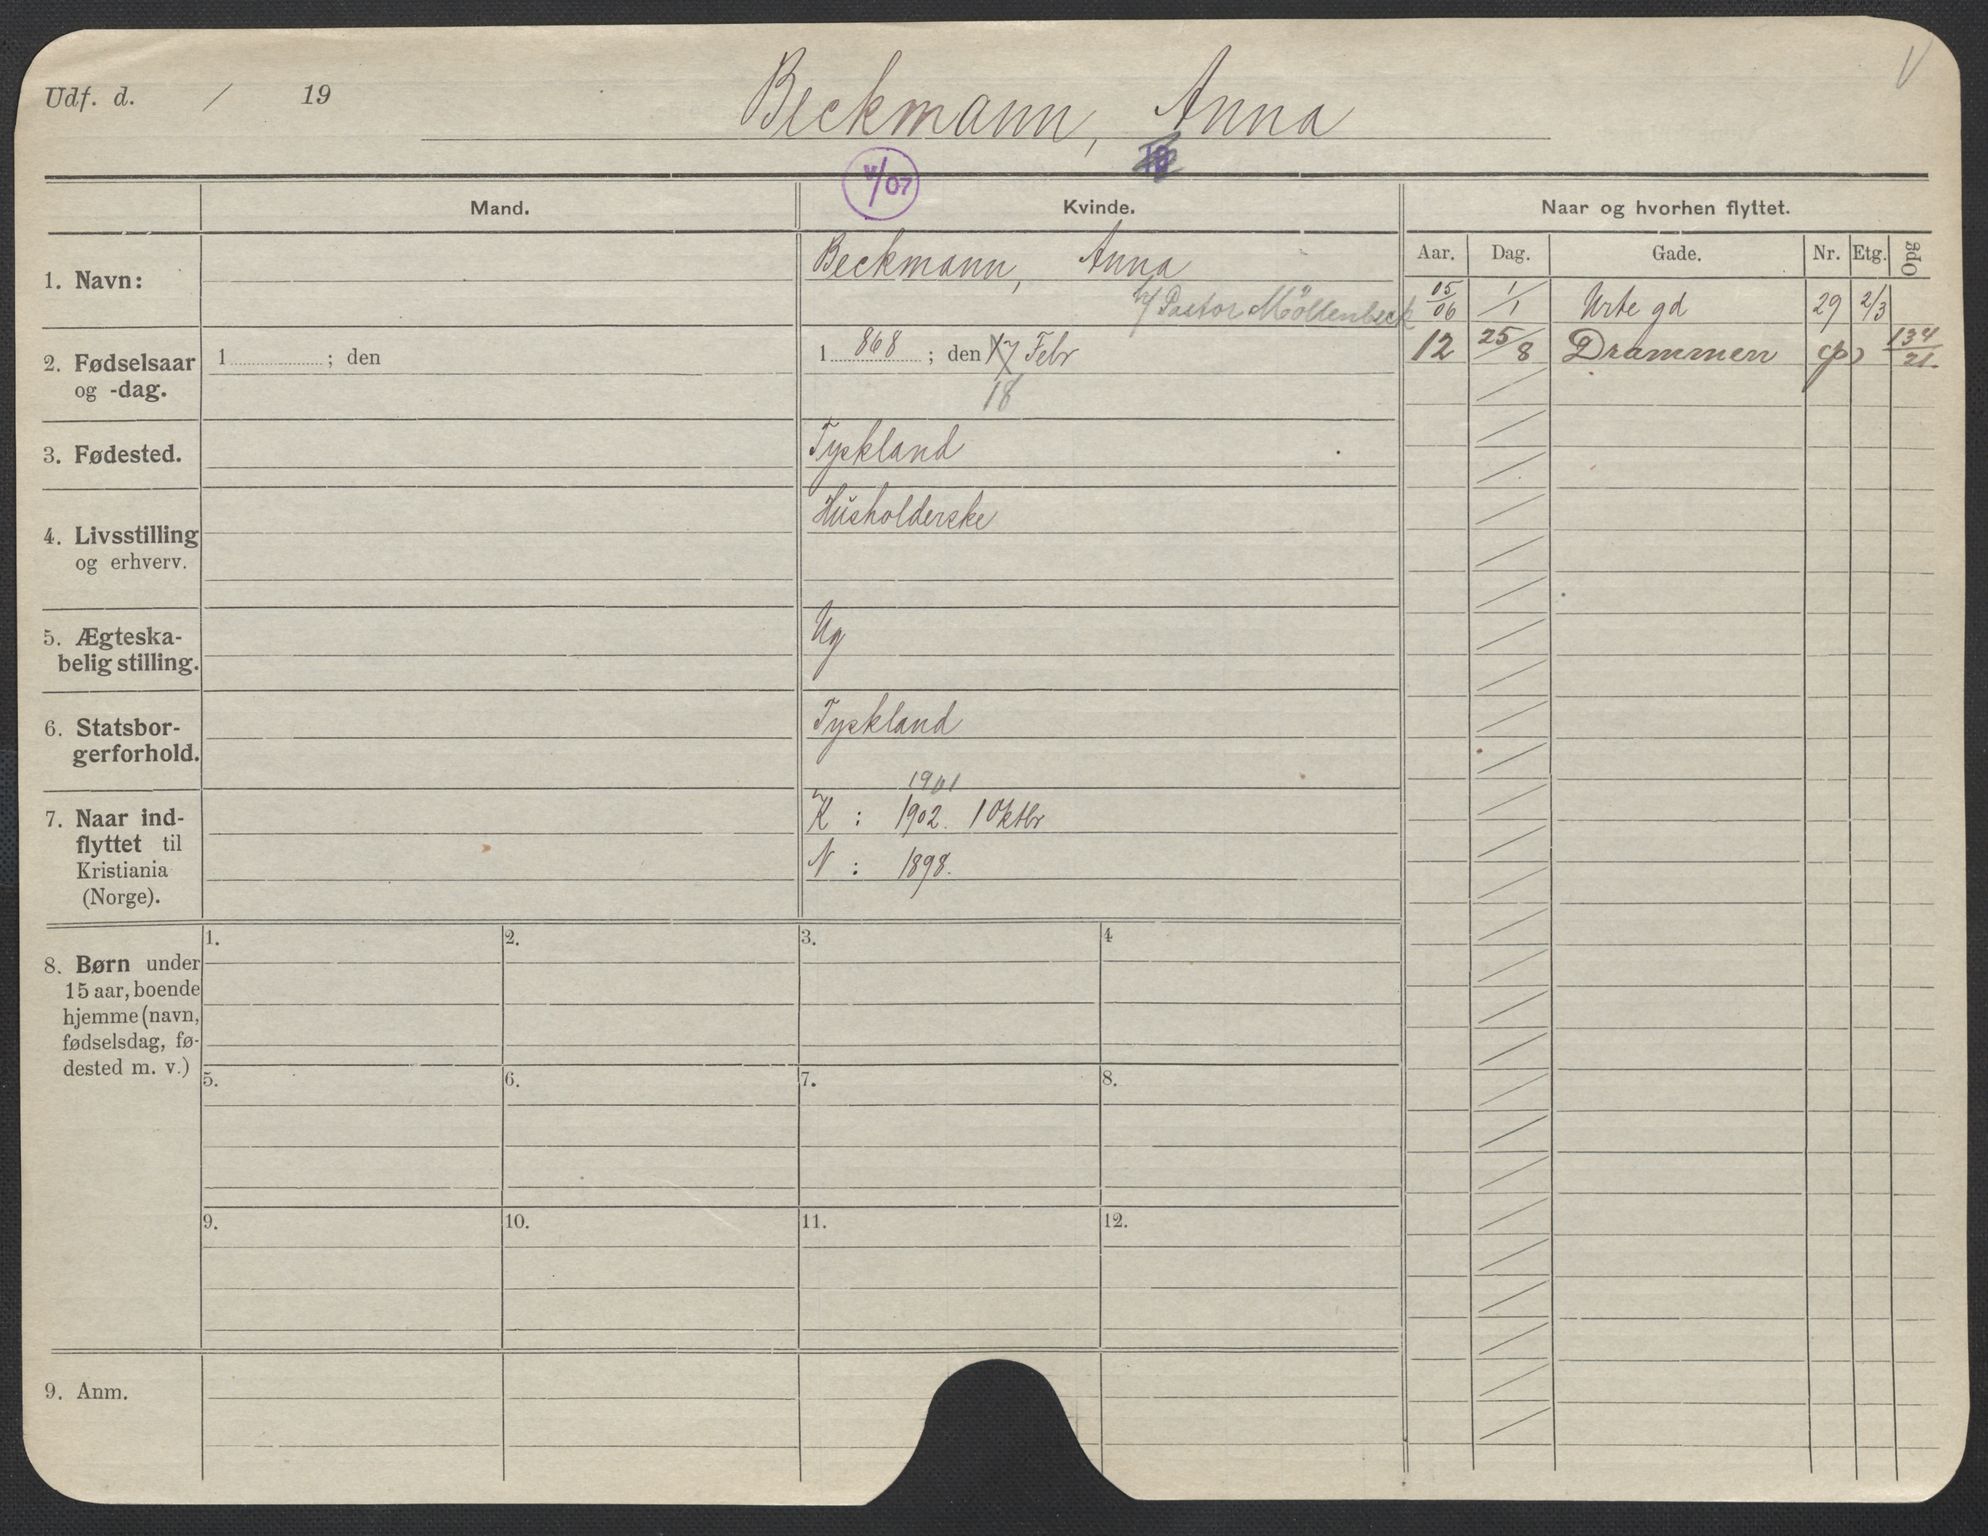 Udf. d. / 19
Beckmann, Anna
V/07
Mand.
Kvinde.
Naar og hvorhen flyttet.
Aar. Dag. Gade. Nr. Etg. Opg
1. Navn:
Beckmann, Anna
v/ Pastor Möllenbeck
05/06 1/1 Urte gd 29 2/3
12 25/8 Drammen 134/21.
2. Fødselsaar
og -dag.
1 ; den
1 868 ; den 17 Febr
18
3. Fødested.
Tyskland
4. Livsstilling
og erhverv.
Husholderske
5. Ægteska-
belig stilling.
Ug
6. Statsbor-
gerforhold.
Tyskland
7. Naar ind-
flyttet til
Kristiania
(Norge).
1901
K : 1902. 1 Oktbr
N : 1898.
8. Børn under
15 aar, boende
hjemme (navn,
fødselsdag, fø-
dested m. v.)
1. 2. 3. 4
5. 6. 7. 8.
9. 10. 11. 12.
9. Anm.